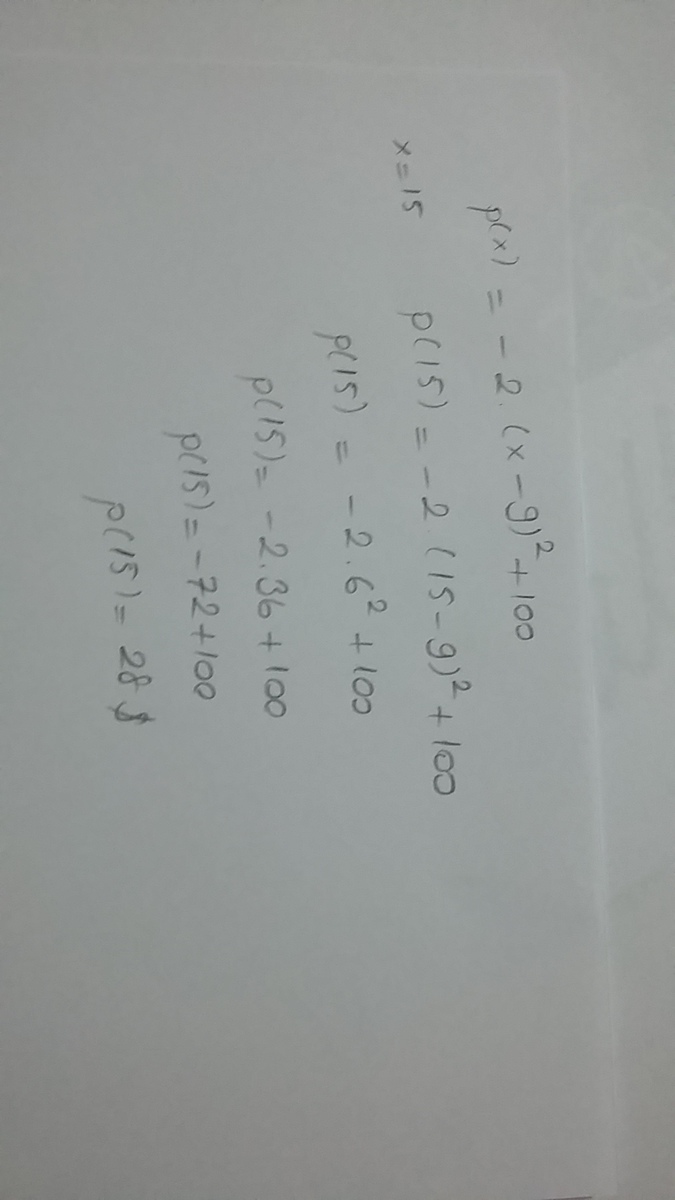 p(x) = -2.(x-9)²+100
x=15 p(15) = -2.(15-9)²+100
p(15) = -2.6²+100
p(15) = -2.36+100
p(15) = -72+100
p(15) = 28 $